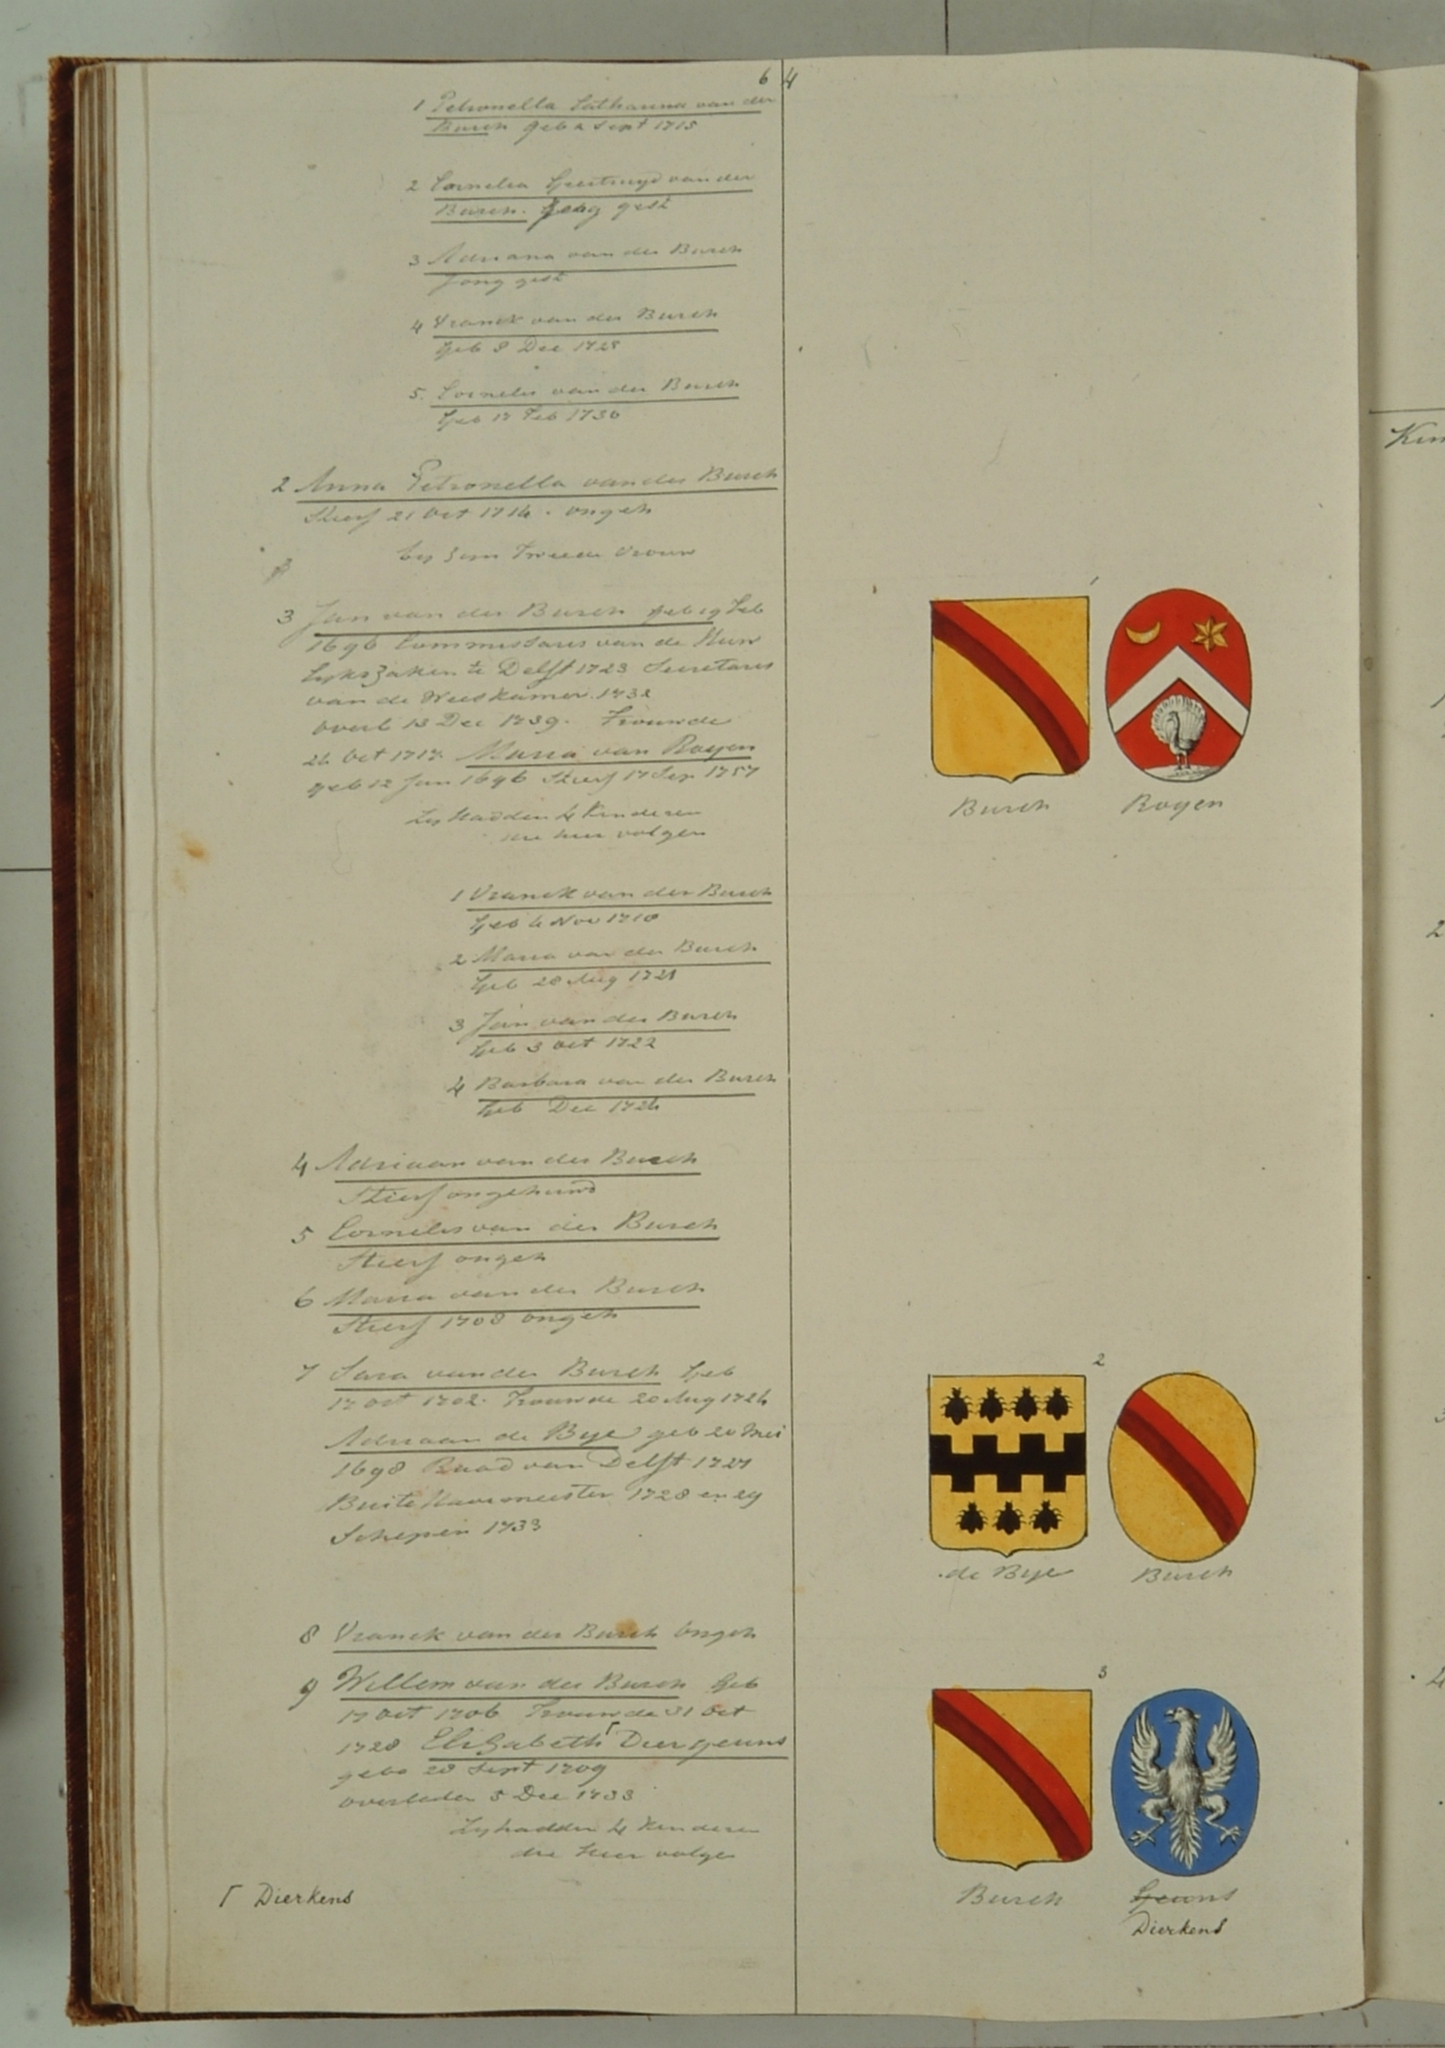 64
1 Petronella Catharina van der
Burch geb 2 Sept 1715
2 Cornelia Geertruyd van der
Burch. Jong gest
3 Adriana van der Burch
Jong gest
4 Vranck van der Burch
Geb 8 Dec 1728
5. Cornelis van der Burch
Geb 17 Feb 1730
2 Anna Petronella van der Burch
Stierf 21 Oct 1714. ongeh
by zijn Tweede Vrouw
3 Jan van der Burch geb 19 Feb
1696 Commissaris van de Huw
lykszaken te Delft 1723 Secretaris
van de Weeskamer 1732
overl 13 Dec 1739. Trouwde
26 Oct 1717. Maria van Royen
geb 12 Jan 1696 Stierf 17 Sep 1757
Zy hadden 4 Kinderen
die hier volgen
1 Vranck van der Burch
Geb 4 Nov 1718
2 Maria van der Burch
Geb 28 Aug 1721
3 Jan van der Burch
Geb 3 Oct 1722
4 Barbara van der Burch
Geb Dec 1724
4 Adriaan van der Burch
Stierf ongehuwd
5 Cornelis van der Burch
Stierf ongeh
6 Maria van der Burch
Stierf 1708 ongeh
7 Sara van der Burch Geb
17 Oct 1702. Trouwde 20 Aug 1724
Adriaan de Bye geb 20 Mei
1698 Raad van Delft 1727
Buite Havenmeester 1728 en 29
Schepen 1733
8 Vranck van der Burch Ongeh
9 Willem van der Burch Geb
17 Oct 1706 Trouwde 31 Oct
1728 Elisabeth ┌ Diergeuns
gebo 28 Sept 1709
overleden 5 Dec 1733
Zy hadden 4 Kinderen
die hier volgen
┌ Dierkens
1
Burch Royen
2
de Bye Burch
3
Burch Geuns
Dierkens
Kin
2
3
4